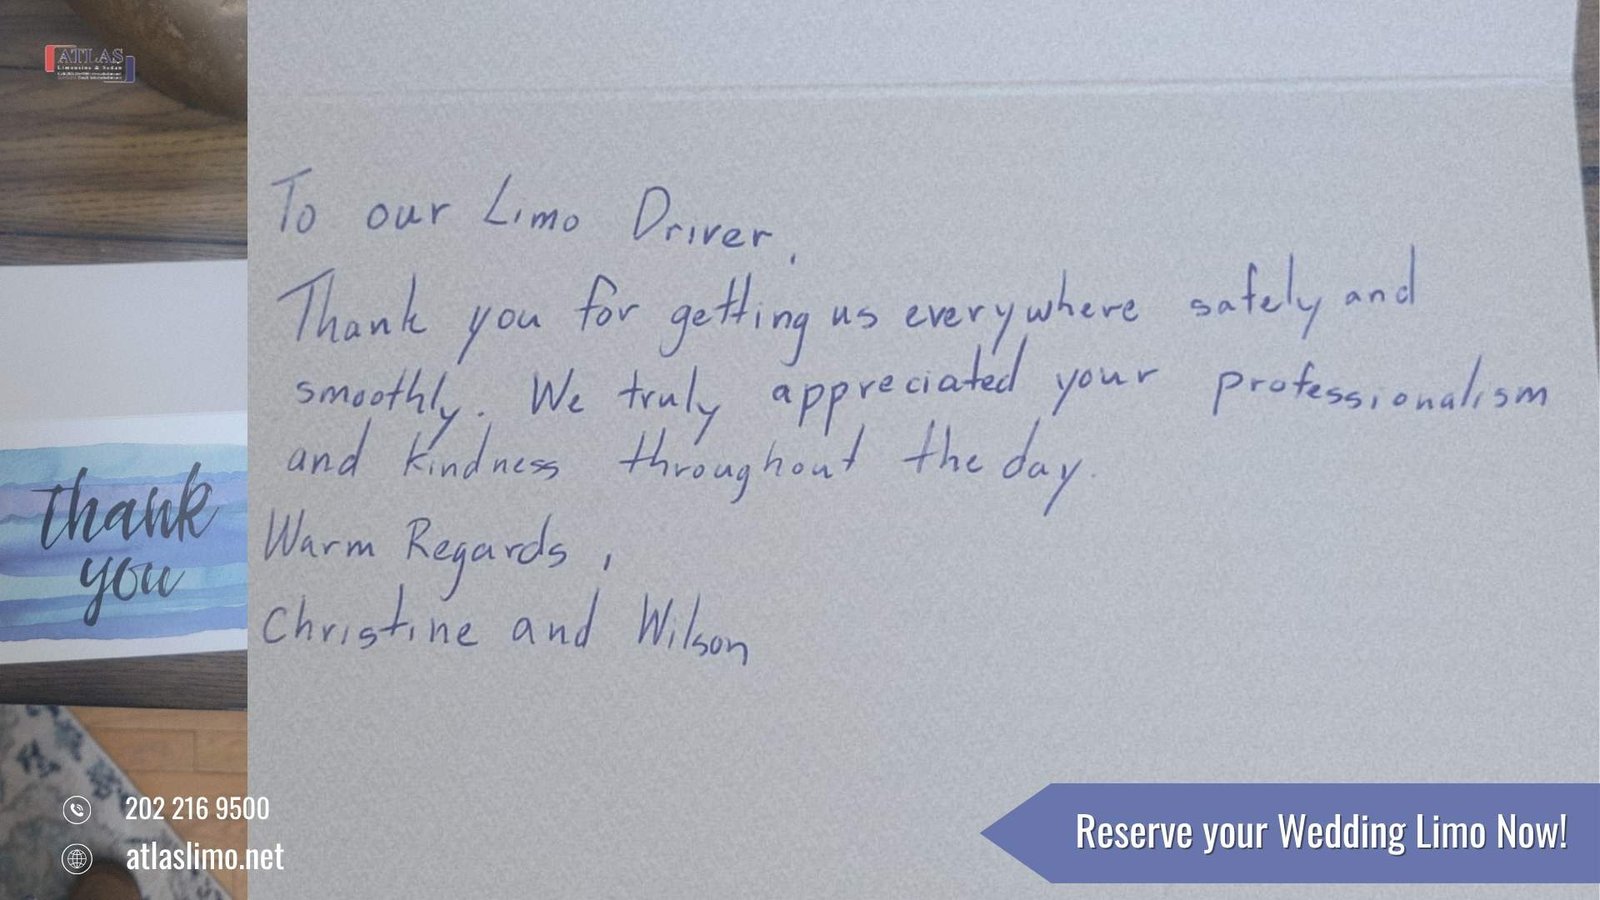 ATLAS
Limousine & Sedan
To our Limo Driver,
Thank you for getting us everywhere safely and
smoothly. We truly appreciated your professionalism
and kindness throughout the day.
Warm Regards,
Christine and Wilson
thank
you
202 216 9500
atlaslimo.net
Reserve your Wedding Limo Now!